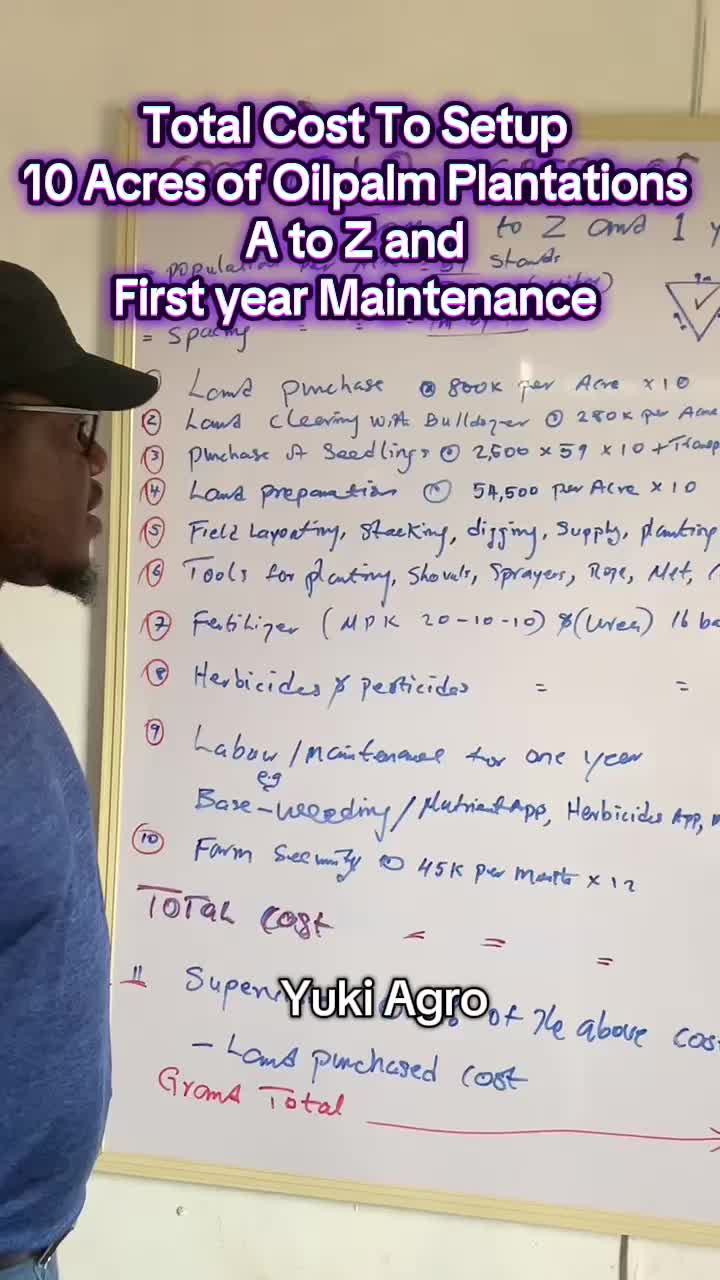 Total Cost To Setup
10 Acres of Oilpalm Plantations
A to Z and
First year Maintenance
to Z and 1 y
population per stands
= Spacing = =
9m
Land purchase @ 800K per Acre x 10
(2) Land clearing with Bulldozer @ 280K per Acre
(3) purchase of Seedlings @ 2,500 x 59 x 10 + Transp
(4) Land preparation @ 54,500 per Acre x 10
(5) Field Layouting, Stacking, digging, Supply, planting
(6) Tools for planting, Shovels, Sprayers, Rope, Met,
(7) Fertilizer (NPK 20-10-10) & (Urea) 16 ba
(8) Herbicides & pesticides = =
(9) Labour/maintenance for one year
e.g
Base-weeding/Nutrient App, Herbicides App,
(10) Farm Security @ 45K per Month x 12
TOTAL COST - = =
11 Superv % of the above cos
Yuki Agro
- Land purchased cost
Grand Total